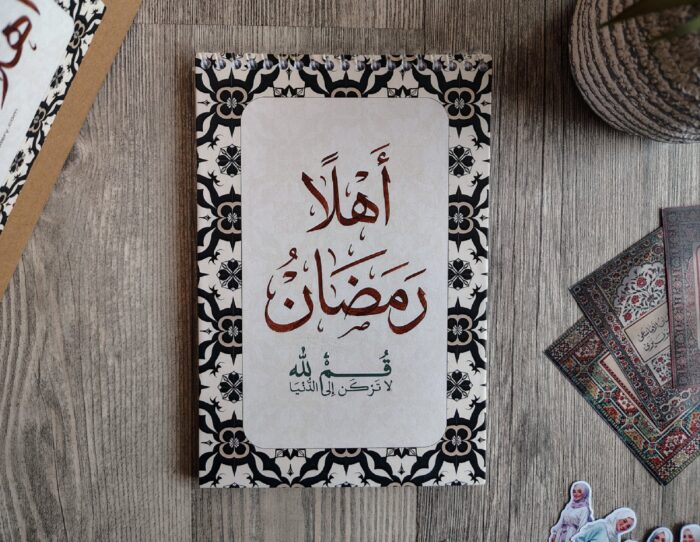 أَهْلًا
رَمَضَانُ
قُمْ لله
لا تَركَن إلى الدُّنْيَا
أهلا